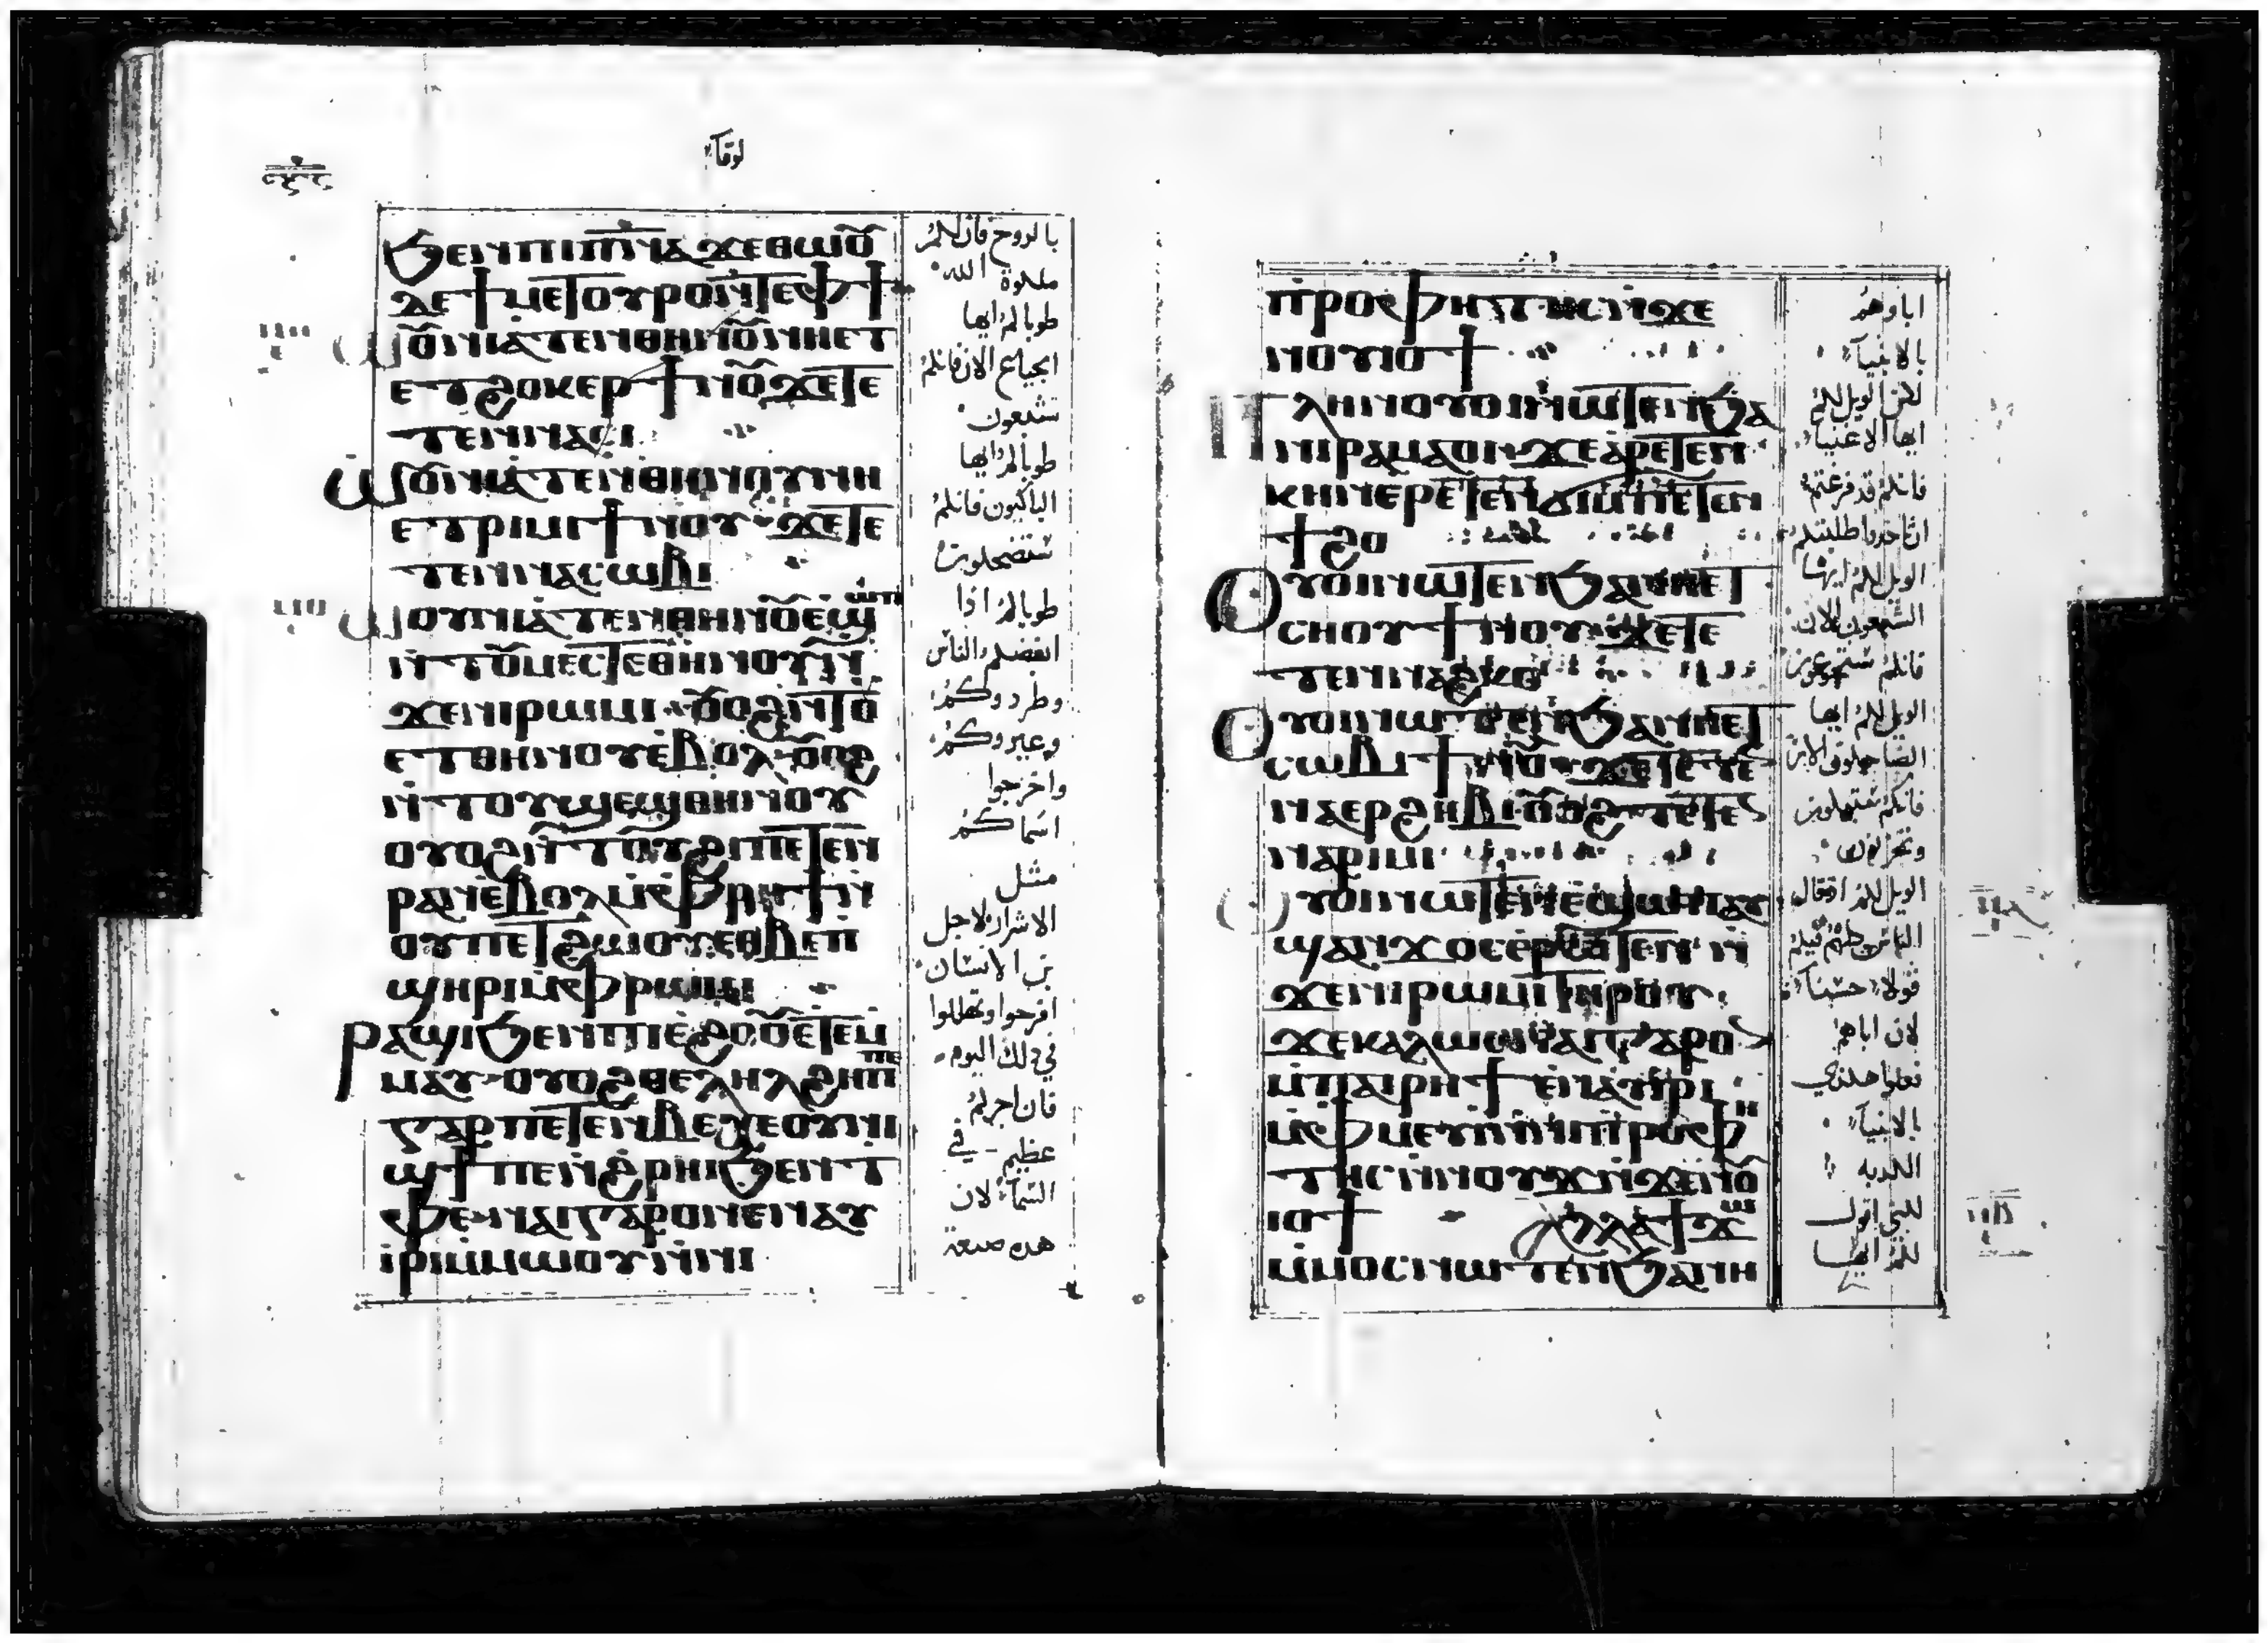 لوقا
ϧⲉⲛⲡⲓⲡ̅ⲛ̅ⲁ̅ϫⲉⲑⲱⲟⲩ̅
ⲧⲉϯⲙⲉⲧⲟⲩⲣⲟⲛ̀ⲧⲉⲫϯ
ⲱⲟⲩ̅ⲛⲓⲁⲧⲉⲛⲑⲏⲛⲟⲩ̅ⲛⲏⲉⲧ
ⲉⲧϩⲟⲕⲉⲣϯⲛⲟⲩ̅ϫⲉⲧⲉ
ⲧⲉⲛⲛⲁⲥⲓ
ⲱⲟⲩ̅ⲛⲓⲁⲧⲉⲛⲑⲏⲛⲟⲩⲛⲏ
ⲉⲧⲣⲓⲙⲓϯⲛⲟⲩϫⲉⲧⲉ
ⲧⲉⲛⲛⲁⲥⲱⲃⲓ
ⲱⲟⲩⲛⲓⲁⲧⲉⲛⲑⲏⲛⲟⲩ̅ⲉ̀ϣⲱⲡ
ⲛ̀ⲧⲟⲩ̅ⲙⲉⲥⲧⲉⲑⲏⲛⲟⲩⲛ̀
ϫⲉⲛⲓⲣⲱⲙⲓⲟⲩ̅ⲟϩⲛ̀ⲧⲟⲩ̅
ⲉⲧⲑⲏⲛⲟⲩⲉ̀ⲃⲟⲗⲟⲩ̅ⲟϩ
ⲛ̀ⲧⲟⲩϣⲉϣⲑⲏⲛⲟⲩ
ⲟⲩⲟϩⲛ̀ⲧⲟⲩϩⲓⲡⲉⲧⲉⲛ
ⲣⲁⲛⲉ̀ⲃⲟⲗⲙ̀ⲫⲣⲏϯⲛ̀
ⲟⲩⲡⲉⲧϩⲱⲟⲩⲉⲑⲃⲉⲡ
ϣⲏⲣⲓⲙ̀ⲫⲣⲱⲙⲓ
ⲣⲁϣⲓϧⲉⲛⲡⲓⲉ̀ϩⲟⲟⲩ̅ⲉⲧⲉⲙ
ⲙⲁⲩⲟⲩⲟϩⲑⲉⲗⲏⲗϩⲏⲡⲡⲉ
ⲅⲁⲣⲡⲉⲧⲉⲛⲃⲉⲭⲉⲟⲩⲛⲓ
ϣϯⲡⲉⲛ̀ϩⲣⲏⲓϧⲉⲛⲧ
ⲫⲉⲛⲁⲓⲅⲁⲣⲟⲛⲉⲛⲁⲩ
ⲓⲣⲓⲙ̀ⲙⲱⲟⲩⲛ̀ⲛⲓ
بالروح فان لكم
ملكوة الله
طوباكم ايها
الجياع الان فانكم
تشبعون
طوباكم ايها
الباكيون فانكم
ستضحكون
طوباكم اذا
ابغضكم الناس
وطردوكم
وعيروكم
واخرجوا
اسماكم
مثل
الاشرار لاجل
بن الانسان
افرحوا وتهللوا
في ذلك اليوم
فان اجركم
عظيم في
السماء لان
هذه صنعة
ⲡ̀ⲣⲟⲫⲏⲧⲏⲥⲛ̀ϫⲉ
ⲛⲟⲩⲓⲟϯ
ⲡⲗⲏⲛⲟⲩⲟⲓⲛⲱⲧⲉⲛϧⲁ
ⲛⲓⲣⲁⲙⲁⲟⲓϫⲉⲁⲣⲉⲧⲉⲛ
ⲕⲏⲛⲉⲣⲉⲧⲉⲛϭⲓⲙ̀ⲡⲉⲧⲉⲛ
ϯϩⲟ
ⲟⲩⲟⲓⲛⲱⲧⲉⲛϧⲁⲛⲏⲉⲧ
ⲥⲏⲟⲩϯⲛⲟⲩϫⲉⲧⲉ
ⲧⲉⲛⲛⲁϩⲕⲟ
ⲟⲩⲟⲓⲛⲱⲧⲉⲛϧⲁⲛⲏⲉⲧ
ⲥⲱⲃⲓϯⲛⲟⲩ̅ϫⲉⲧⲉⲧⲉ
ⲛⲁⲉⲣϩⲏⲃⲓⲟⲩ̅ⲟϩⲧⲉⲧⲉ
ⲛⲁⲣⲓⲙⲓ
ⲟⲩⲟⲓⲛⲱⲧⲉⲛⲉ̀ϣⲱⲡⲁⲩ
ϣⲁⲛϫⲟⲥⲉⲣⲱⲧⲉⲛⲛ̀
ϫⲉⲛⲓⲣⲱⲙⲓⲧⲏⲣⲟⲩ
ϫⲉⲕⲁⲗⲱⲥⲛⲁⲓⲅⲁⲣⲟ
ⲙ̀ⲡⲁⲓⲣⲏϯⲉⲛⲁⲩⲓⲣⲓ
ⲙ̀ⲫⲙⲉⲩⲓⲛ̀ⲛⲓⲡⲣⲟⲫⲏ
ⲧⲏⲥⲛ̀ⲛⲟⲩϫⲛ̀ϫⲉⲛⲟⲩ̅
ⲓⲟϯ ⲁⲗⲗⲁϯϫⲱ
ⲙ̀ⲙⲟⲥⲛⲱⲧⲉⲛϧⲁⲛⲏ
اباوهم
بالانبياء
لكن الويل لكم
ايها الاغنياء
الويل لكم ايها
الشبعون الان
فانكم ستجوعون
الويل لكم ايها
الضاحكون الان
الويل لكم اذا قال
قولا حسنا
لان اباهم
فعلوا هكذي
بالانبياء
الكدبه
لكني اقول
لكم ايها